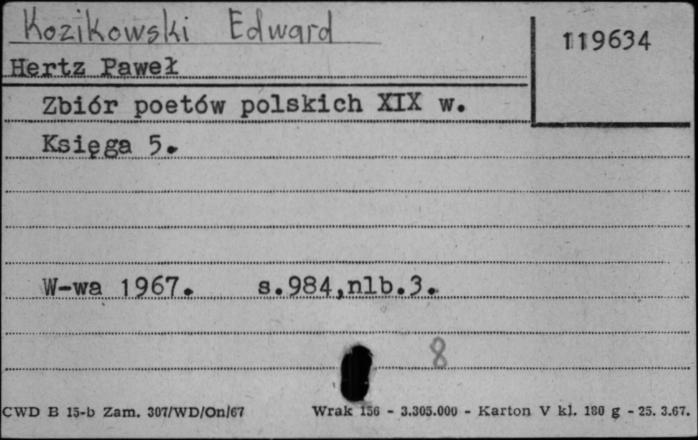 Kozikowski Edward
119634
Hertz Paweł
Zbiór poetów polskich XIX w.
Księga 5.
W-wa 1967. s.984,nlb.3.
8
CWD B 15-b Zam. 307/WD/On/67 Wrak 156 - 3.305.000 - Karton V kl. 180 g - 25. 3.67.